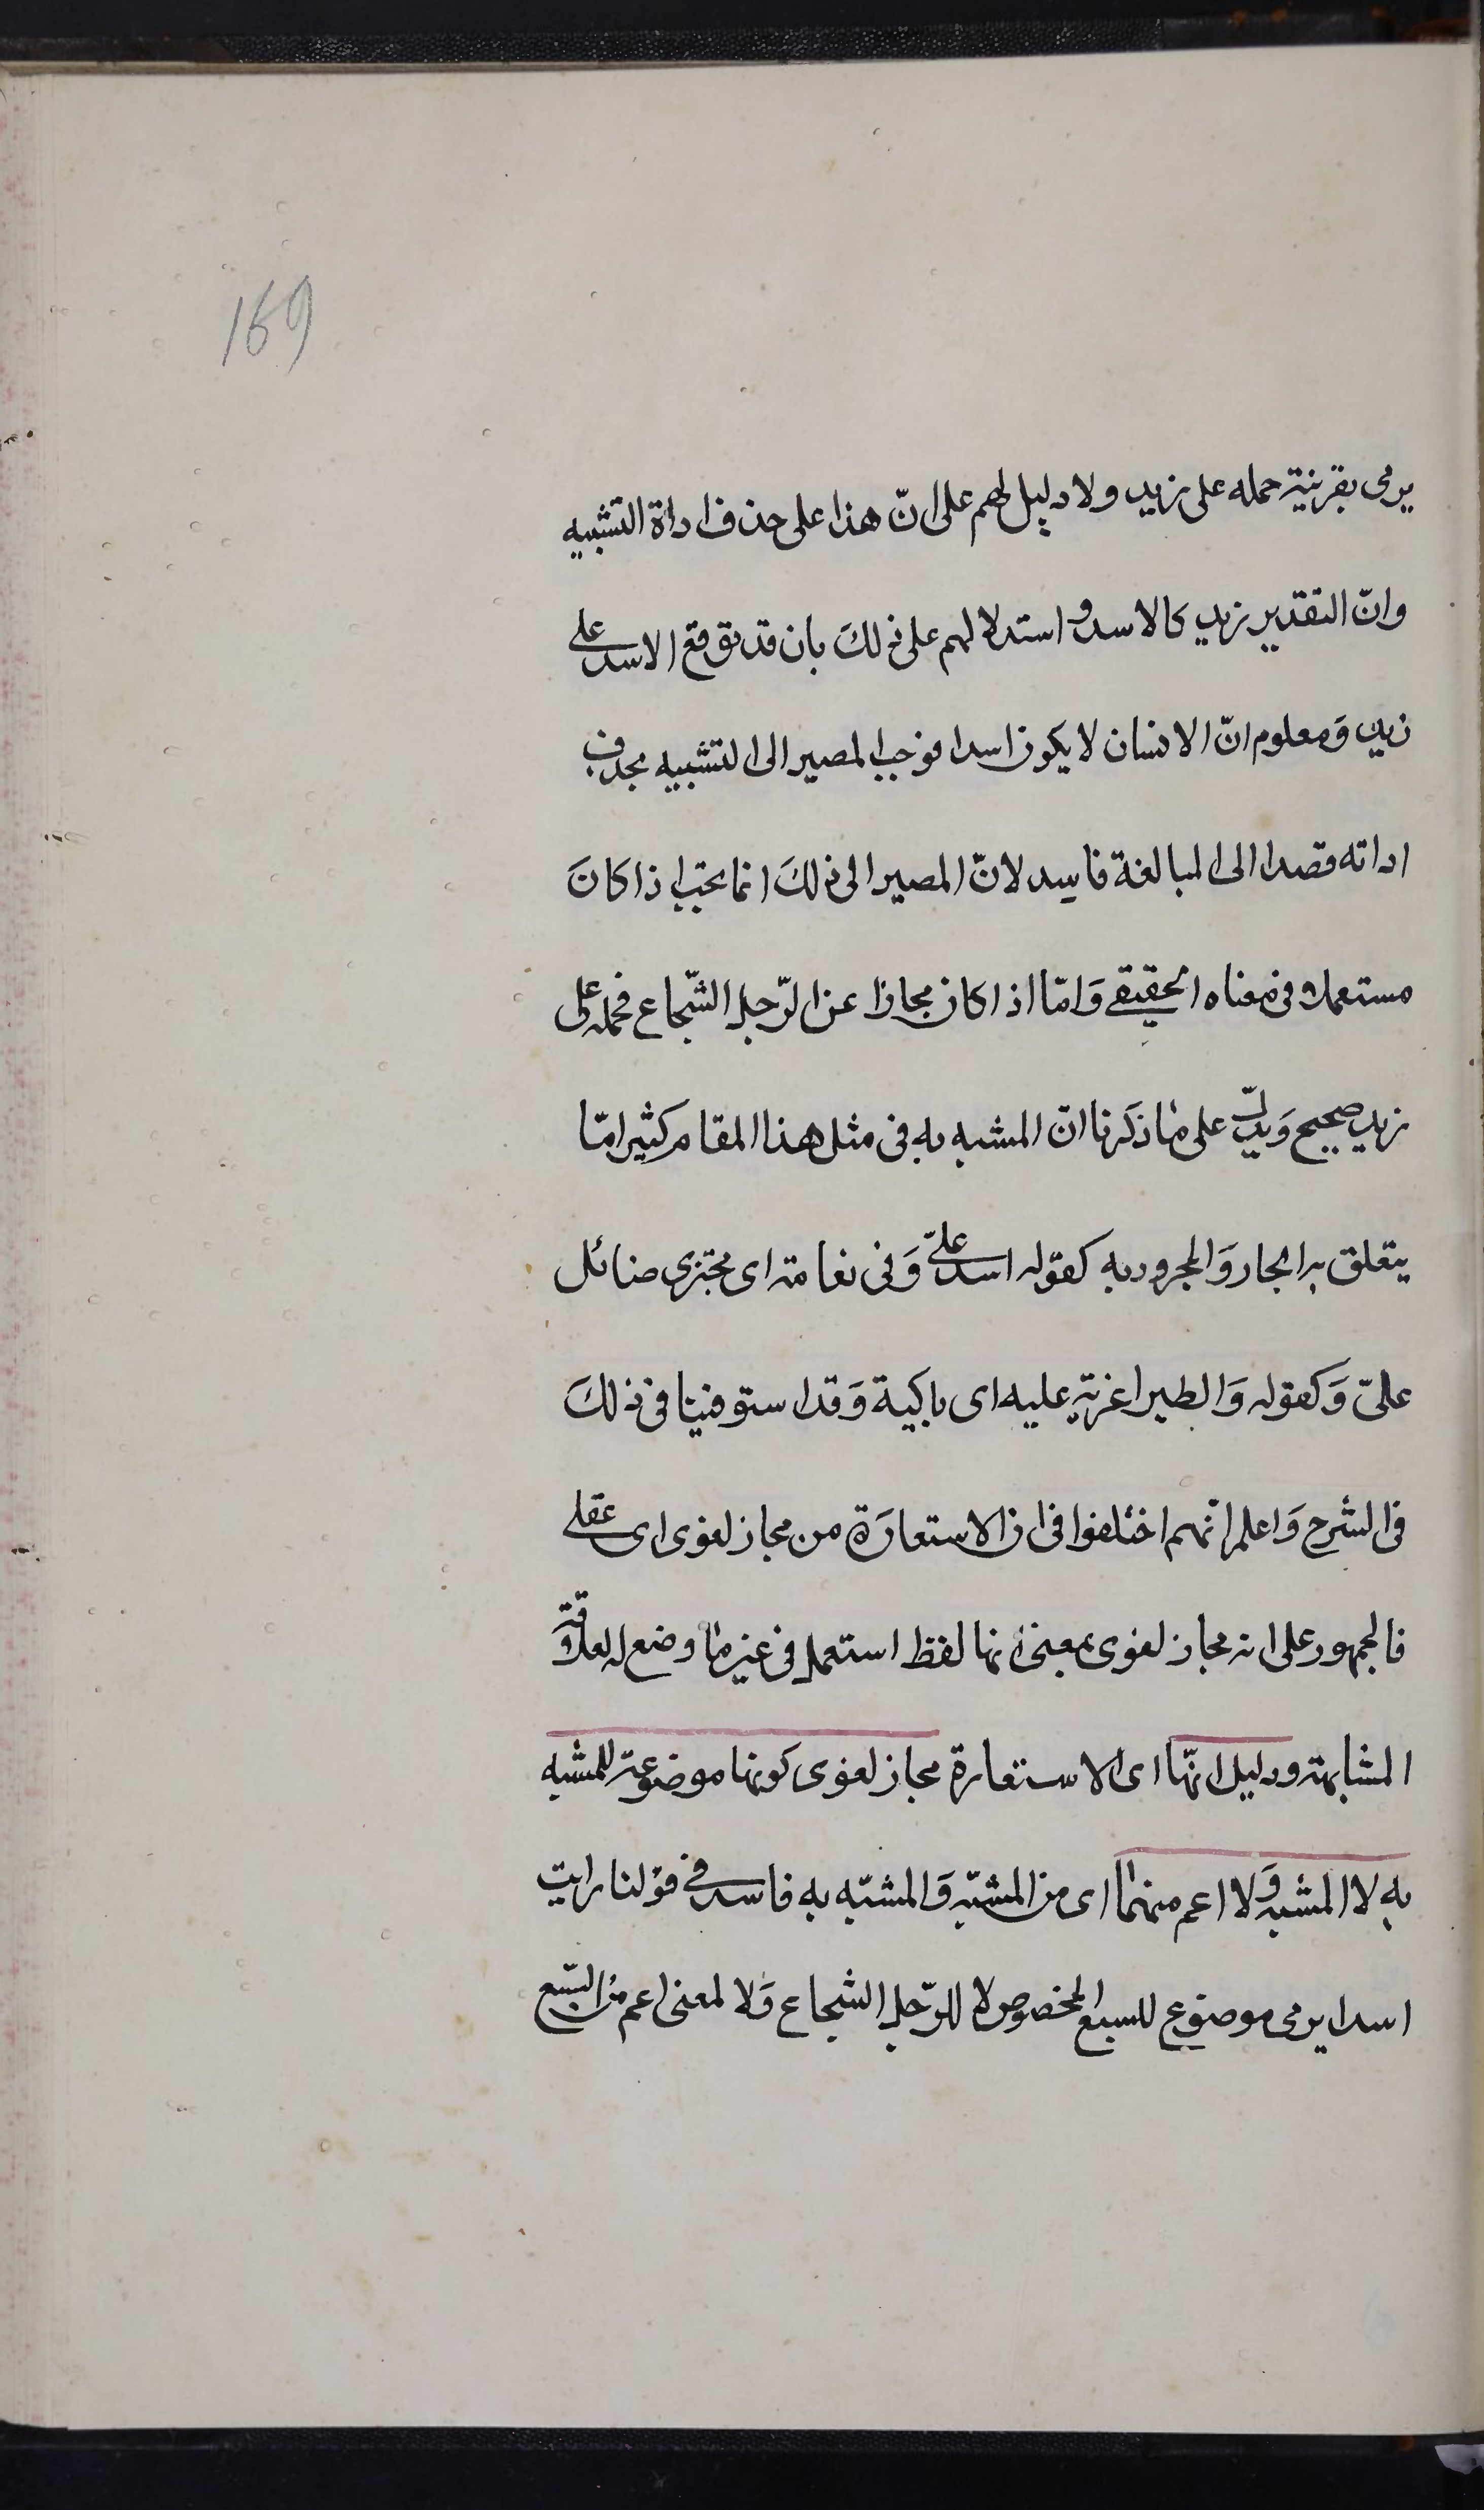 169
يرمى بقرينة حمله على زيد ولا دليل لهم على انّ هذا على حذف اداة التشبيه
وانّ التقدير زيد كالاسد واستدلالهم على ذلكَ بان قد يوقع الاسد على
زيد وَمعلوم انّ الانسان لا يكون اسدا فوجب المصير الى التشبيه بحذف
اداته قصدا الى المبالغة فاسد لانّ المصير الى ذلكَ انما يجب اذا كانَ
مستعملا فى معناه الحقيقے وَامّا اذا كان مجازا عن الرّجل الشّجاع فحمله على
زيد صحيح وَيدلّ على ما ذكرنا انّ المشبه به فى مثل هذا المقام كثيرا مّا
يتعلق به الجار وَالمجرور به كقوله اسد علىّ وَفى نعامة اى مجترى صائل
علىّ وَكقوله وَالطير اغربة عليه اى باكية وَقد استوفينا فى ذلكَ
فى الشرح وَاعلم انّهم اختلفوا فى ان الاستعارَة من مجاز لغوى اى عقلے
فالجمهور على انه مجاز لغوى بمعنى انها لفظ استعمل فى غير ما وضع له لعلاقة
المشابهة ودليل انّها اى الاستعارة مجاز لغوى كونها موضوعة للمشبه
به لا المشبه وَلا اعم منهما اى من المشبّه وَالمشبّه به فاسد فے قولنا رايت
اسدا يرمى موضوع للسبع المخصوص لا للرّجل الشجاع وَلا لمعنى اعم من السّبع